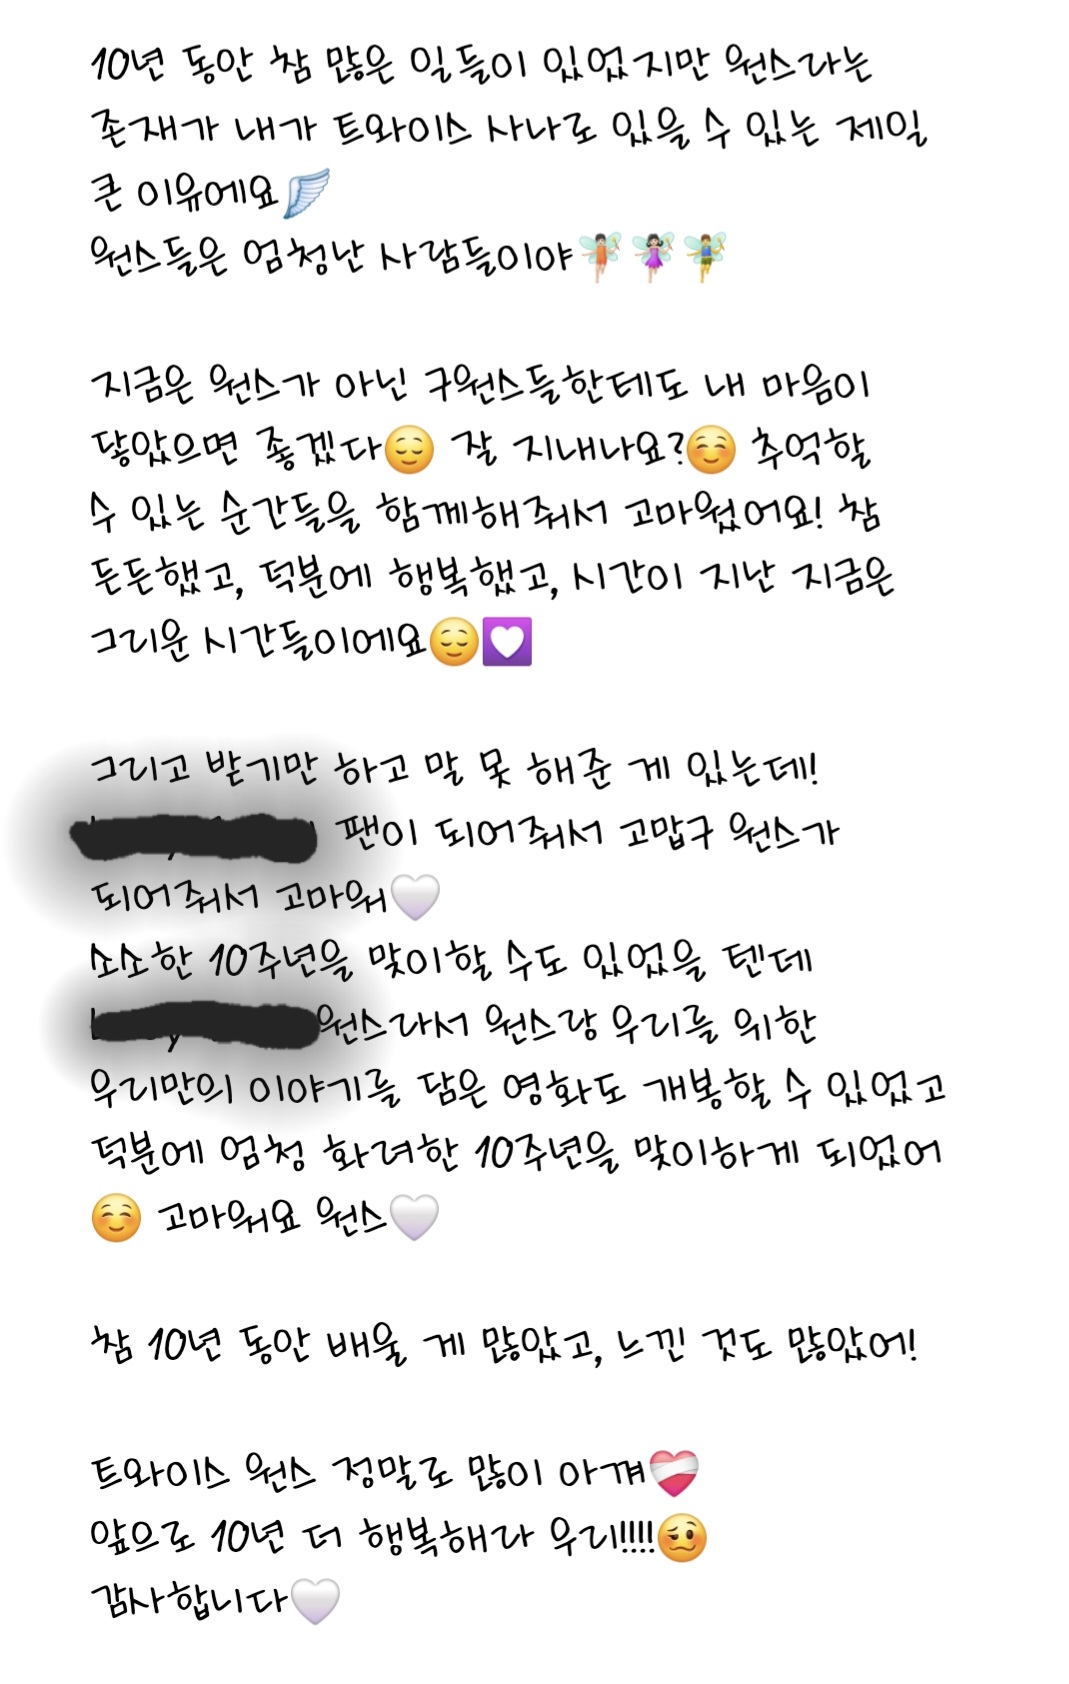 10년 동안 참 많은 일들이 있었지만 원스라는
존재가 내가 트와이스 사나로 있을 수 있는 제일
큰 이유에요🪽
원스들은 엄청난 사람들이야🧚🏻🧚🏻‍♀️🧚‍♂️
지금은 원스가 아닌 구원스들한테도 내 마음이
닿았으면 좋겠다😌 잘 지내나요?☺️ 추억할
수 있는 순간들을 함께해줘서 고마웠어요! 참
든든했고, 덕분에 행복했고, 시간이 지난 지금은
그리운 시간들이에요😌💟
그리고 받기만 하고 말 못 해준 게 있는데!
팬이 되어줘서 고맙구 원스가
되어줘서 고마워🤍
소소한 10주년을 맞이할 수도 있었을 텐데
원스라서 원스랑 우리를 위한
우리만의 이야기를 담은 영화도 개봉할 수 있었고
덕분에 엄청 화려한 10주년을 맞이하게 되었어
☺️ 고마워요 원스🤍
참 10년 동안 배울 게 많았고, 느낀 것도 많았어!
트와이스 원스 정말로 많이 아껴❤️‍🩹
앞으로 10년 더 행복해라 우리!!!!🥴
감사합니다🤍